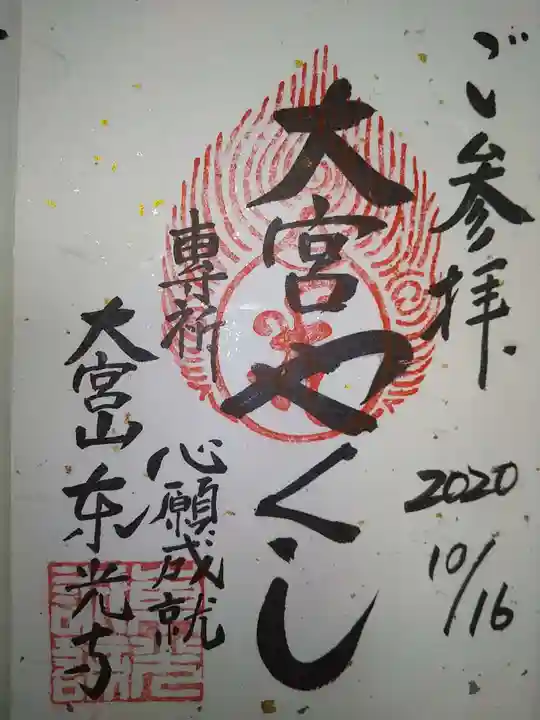 ご参拝
2020
10/16
大宮やくし
専祈
心願成就
大宮山东光寺